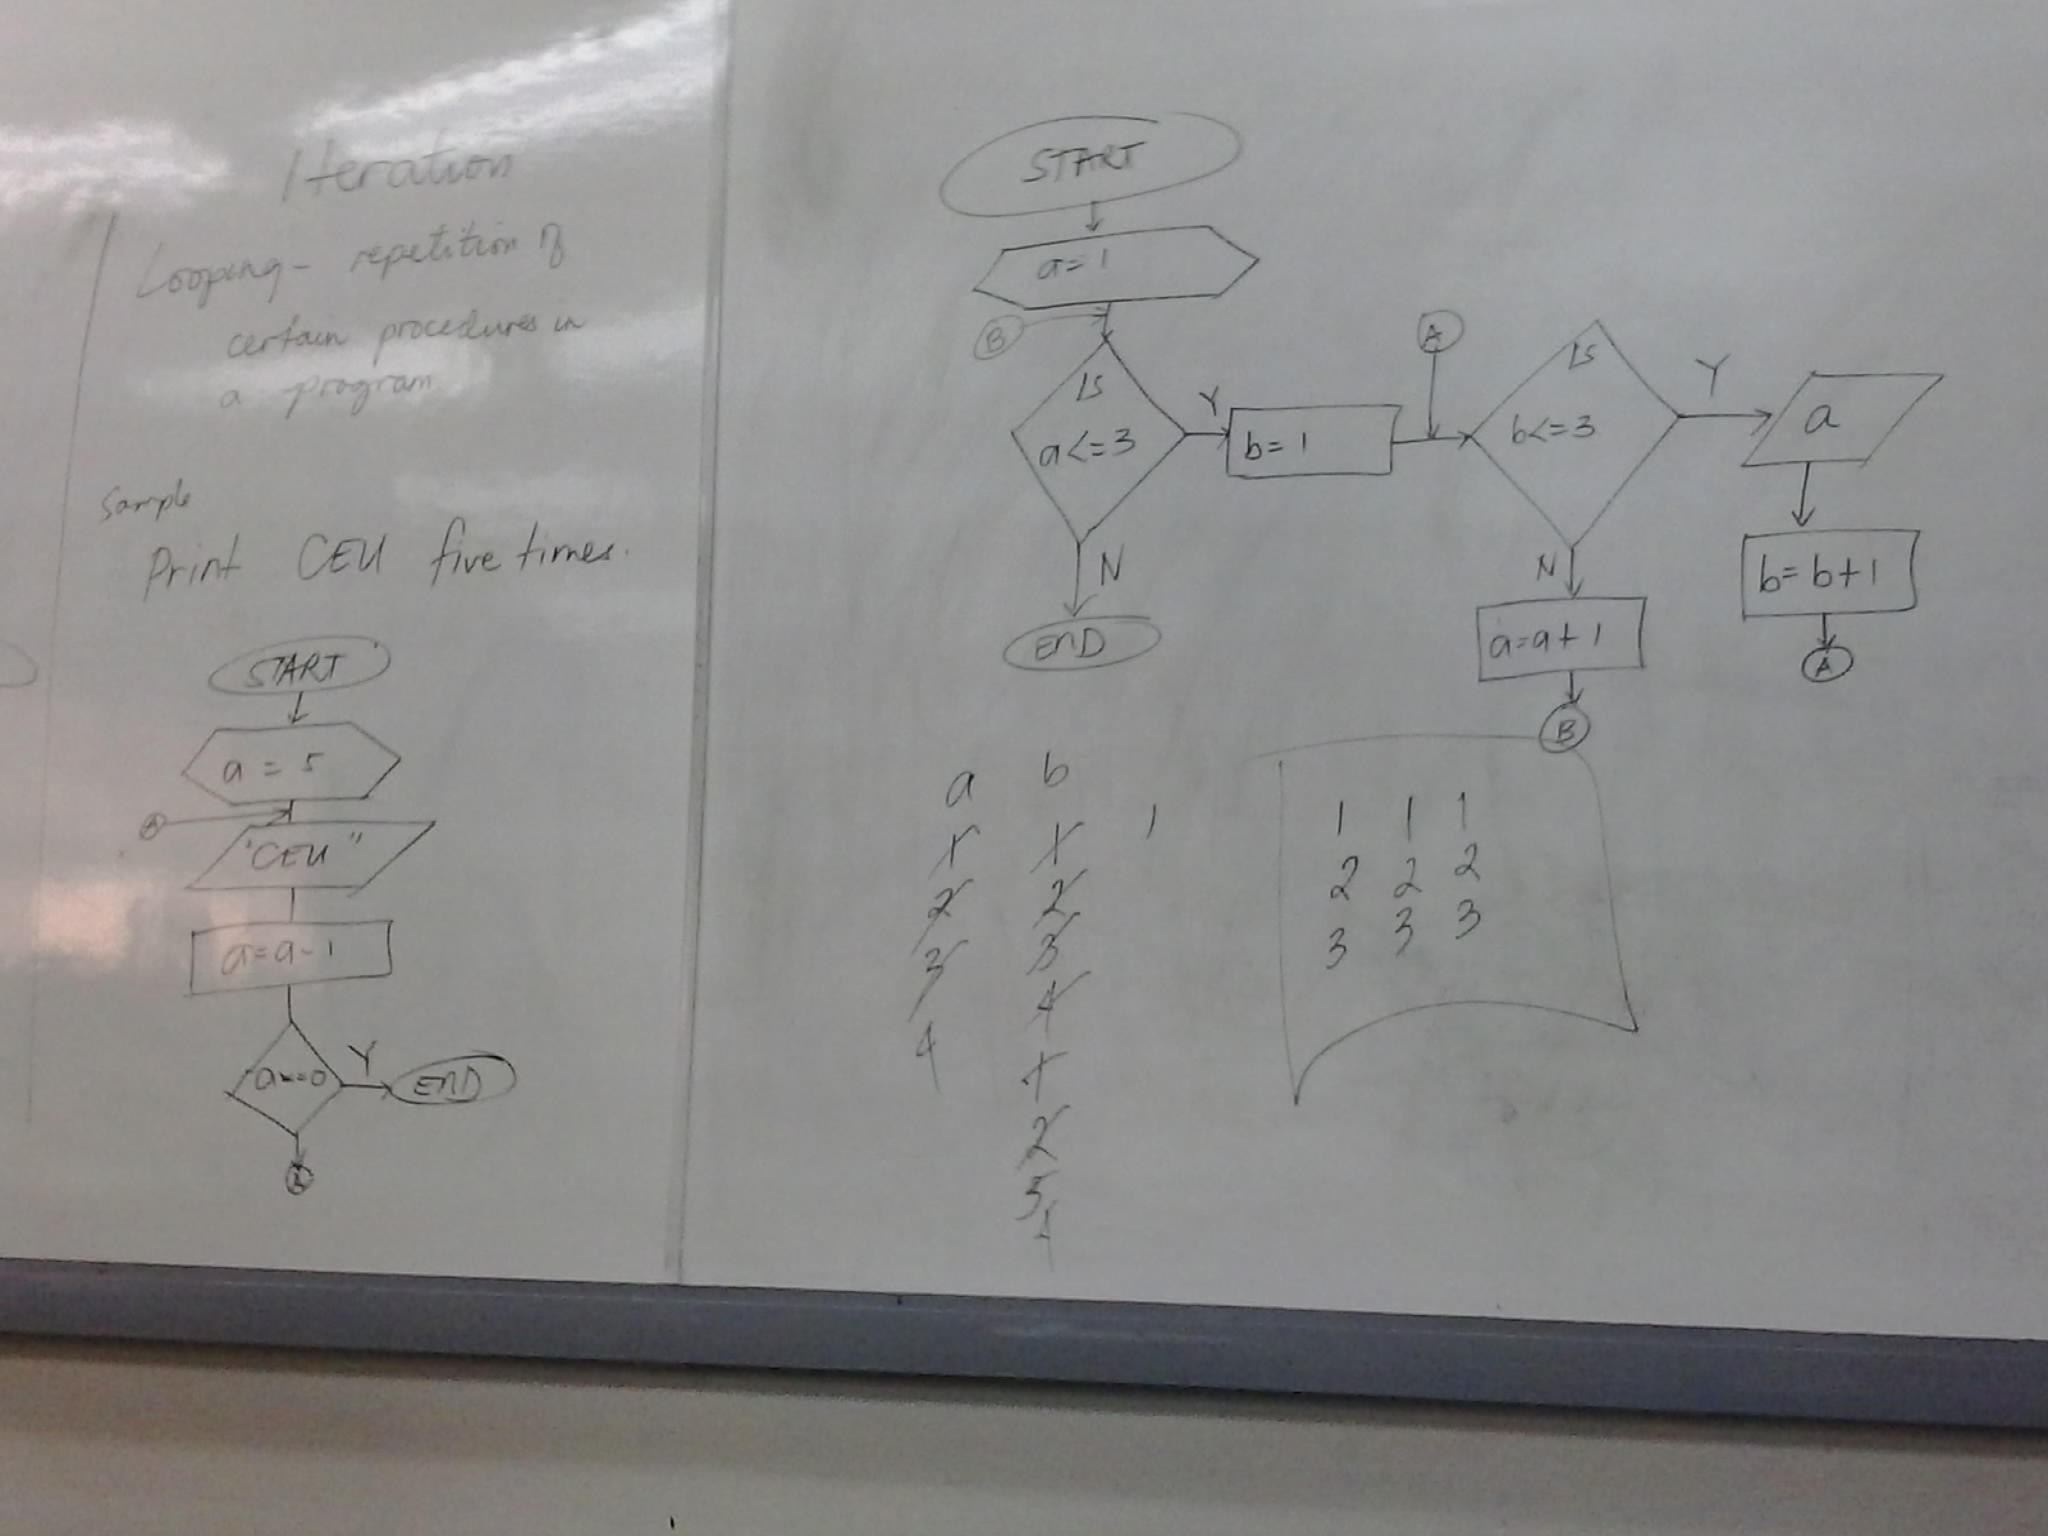 Iteration
Looping - repetition of
certain procedures in
a program
Sample
Print CEU five times.
START
a = 5
A
"CEU"
a=a-1
Y
END
START
a=1
B
Is
a<=3
Y
b=1
A
Is
b<=3
Y
a
N
END
N
a=a+1
B
b=b+1
A
a b
1 1 1
2 2
3 3
4 4
1
2
3
1 1 1
2 2 2
3 3 3